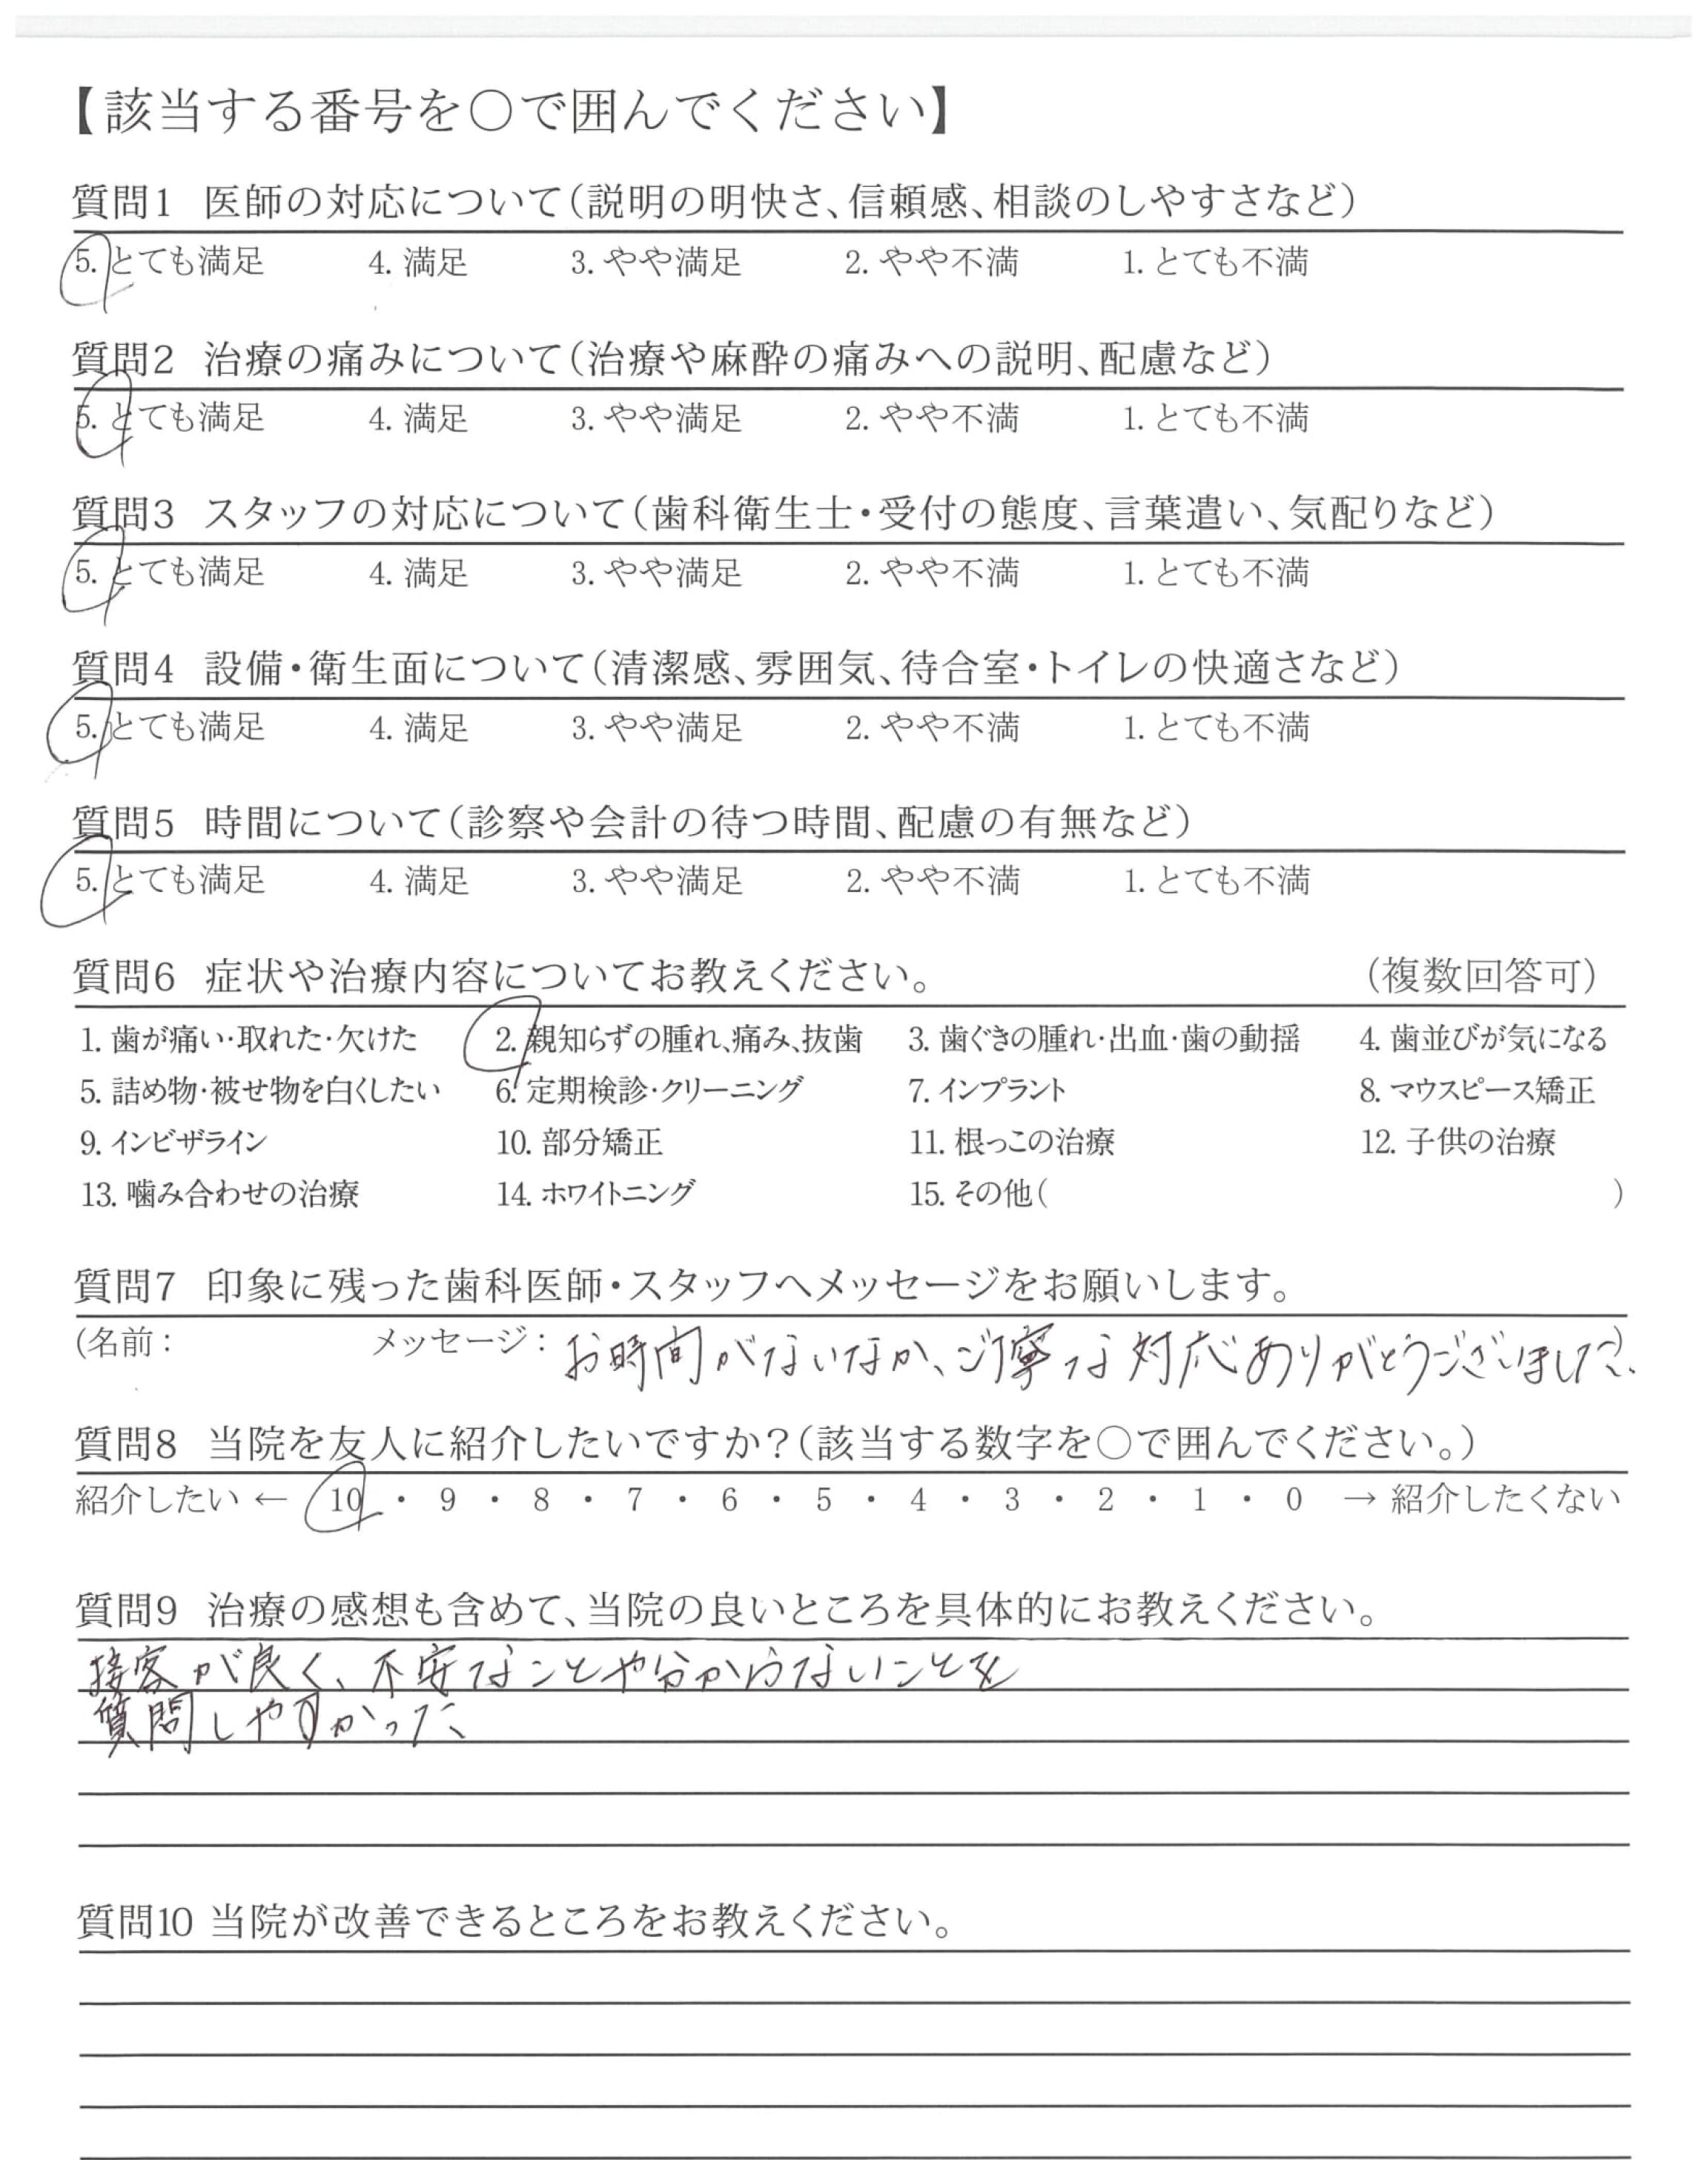 【該当する番号を○で囲んでください】
質問1 医師の対応について(説明の明快さ、信頼感、相談のしやすさなど)
5. とても満足 4. 満足 3. やや満足 2. やや不満 1. とても不満
質問2 治療の痛みについて(治療や麻酔の痛みへの説明、配慮など)
5. とても満足 4. 満足 3. やや満足 2. やや不満 1. とても不満
質問3 スタッフの対応について(歯科衛生士・受付の態度、言葉遣い、気配りなど)
5. とても満足 4. 満足 3. やや満足 2. やや不満 1. とても不満
質問4 設備・衛生面について(清潔感、雰囲気、待合室・トイレの快適さなど)
5. とても満足 4. 満足 3. やや満足 2. やや不満 1. とても不満
質問5 時間について(診察や会計の待つ時間、配慮の有無など)
5. とても満足 4. 満足 3. やや満足 2. やや不満 1. とても不満
質問6 症状や治療内容についてお教えください。 (複数回答可)
1. 歯が痛い・取れた・欠けた 2. 親知らずの腫れ、痛み、抜歯 3. 歯ぐきの腫れ・出血・歯の動揺 4. 歯並びが気になる
5. 詰め物・被せ物を白くしたい 6. 定期検診・クリーニング 7. インプラント 8. マウスピース矯正
9. インビザライン 10. 部分矯正 11. 根っこの治療 12. 子供の治療
13. 噛み合わせの治療 14. ホワイトニング 15. その他( )
質問7 印象に残った歯科医師・スタッフへメッセージをお願いします。
(名前: メッセージ: お時間がないなか、ご丁寧な対応ありがとうございました。
質問8 当院を友人に紹介したいですか?(該当する数字を○で囲んでください。)
紹介したい ← 10 ・ 9 ・ 8 ・ 7 ・ 6 ・ 5 ・ 4 ・ 3 ・ 2 ・ 1 ・ 0 → 紹介したくない
質問9 治療の感想も含めて、当院の良いところを具体的にお教えください。
接客が良く、不安なことや分からないことを
質問しやすかった
質問10 当院が改善できるところをお教えください。